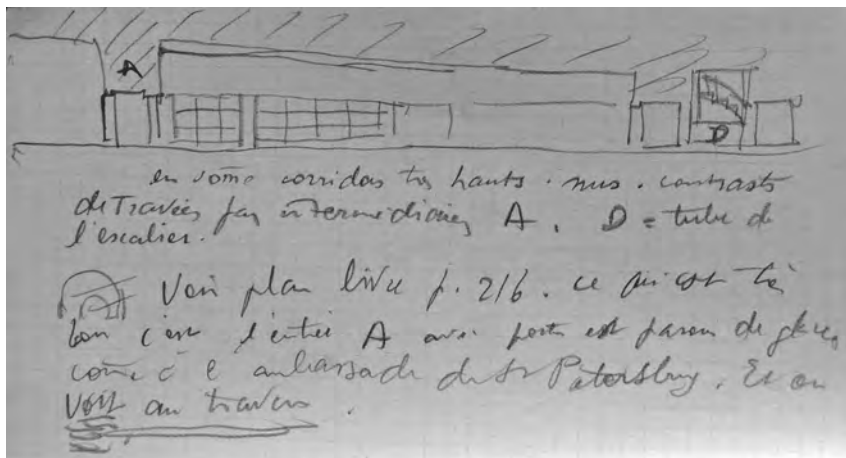 A
D
en some corridors très hauts. nus. contrasts
de Travées par intermédiaires A. D = tube de
l'escalier.
Voir plan livre p. 216. ce qui est très
bon c'est l'entrée A avec porte et parois de glaces
come à l'ambassade de St Petersburg. Et on
voit au travers.